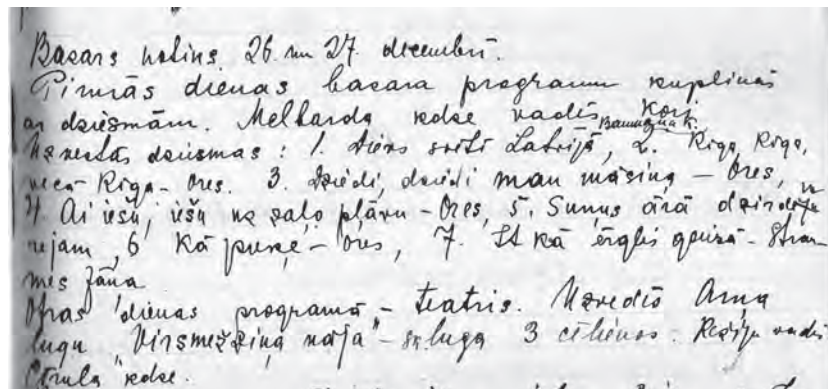 Basars notiks 26. un 27. decembrī.
Pirmās dienas basara programu kuplinās
ar dziesmām. Melbardg kdze vadīs kori.
Baumaņa k.
Uzvestās dziesmas: 1. Dievs svētī Latviju, 2. Rīga, Rīga,
vecā Rīga - Ores. 3. Dziedi, dziedi man māsiņa - Ores,
4. Ai iešu, iešu uz zaļo pļavu - Ores, 5. Suņus ārā dzirdēju
rejam, 6 Kā puķe - Ores, 7. Kā ērglis - Stru-
mes Jāņa
Otras dienas programā - teatris. Uzvedīs Arņa
lugu "Virsmežziņa māja" - luga 3 cēlienos. Režiju vadīs
kdze.